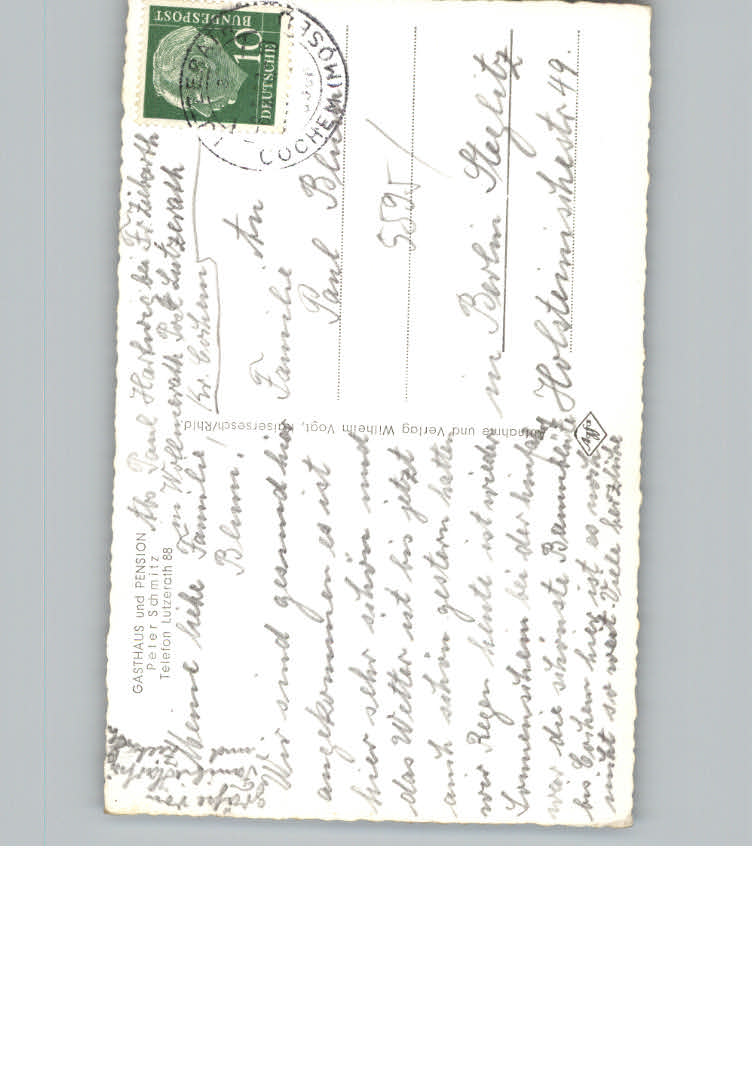 GASTHAUS und PENSION
Peter Schmitz
Telefon Lutzerath 88
Abs Paul Hartwig bei Fr. Zilvarth
in Wollmerath Post Lutzerath
Kr. Cochem
Meine liebe Familie
Blum!
Wir sind gesund hier
angekommen es ist
hier sehr schön und
das Wetter ist bis jetzt
auch schön gestern hatten
wir Regen heute ist wieder
Sonnenschein bei der
war die schönste
bis Cochem hier ist es noch
nicht so weit. Viele herzliche
Grüße
Familie Hartwig
und
Aufnahme und Verlag Wilhelm Vogt, Kaisersesch/Rhld.
Agfa
DEUTSCHE
BUNDESPOST
10
COCHEM (MOSEL)
An
Familie
Paul Blum
5595/
in Berlin Steglitz
Holsteinischestr 49.